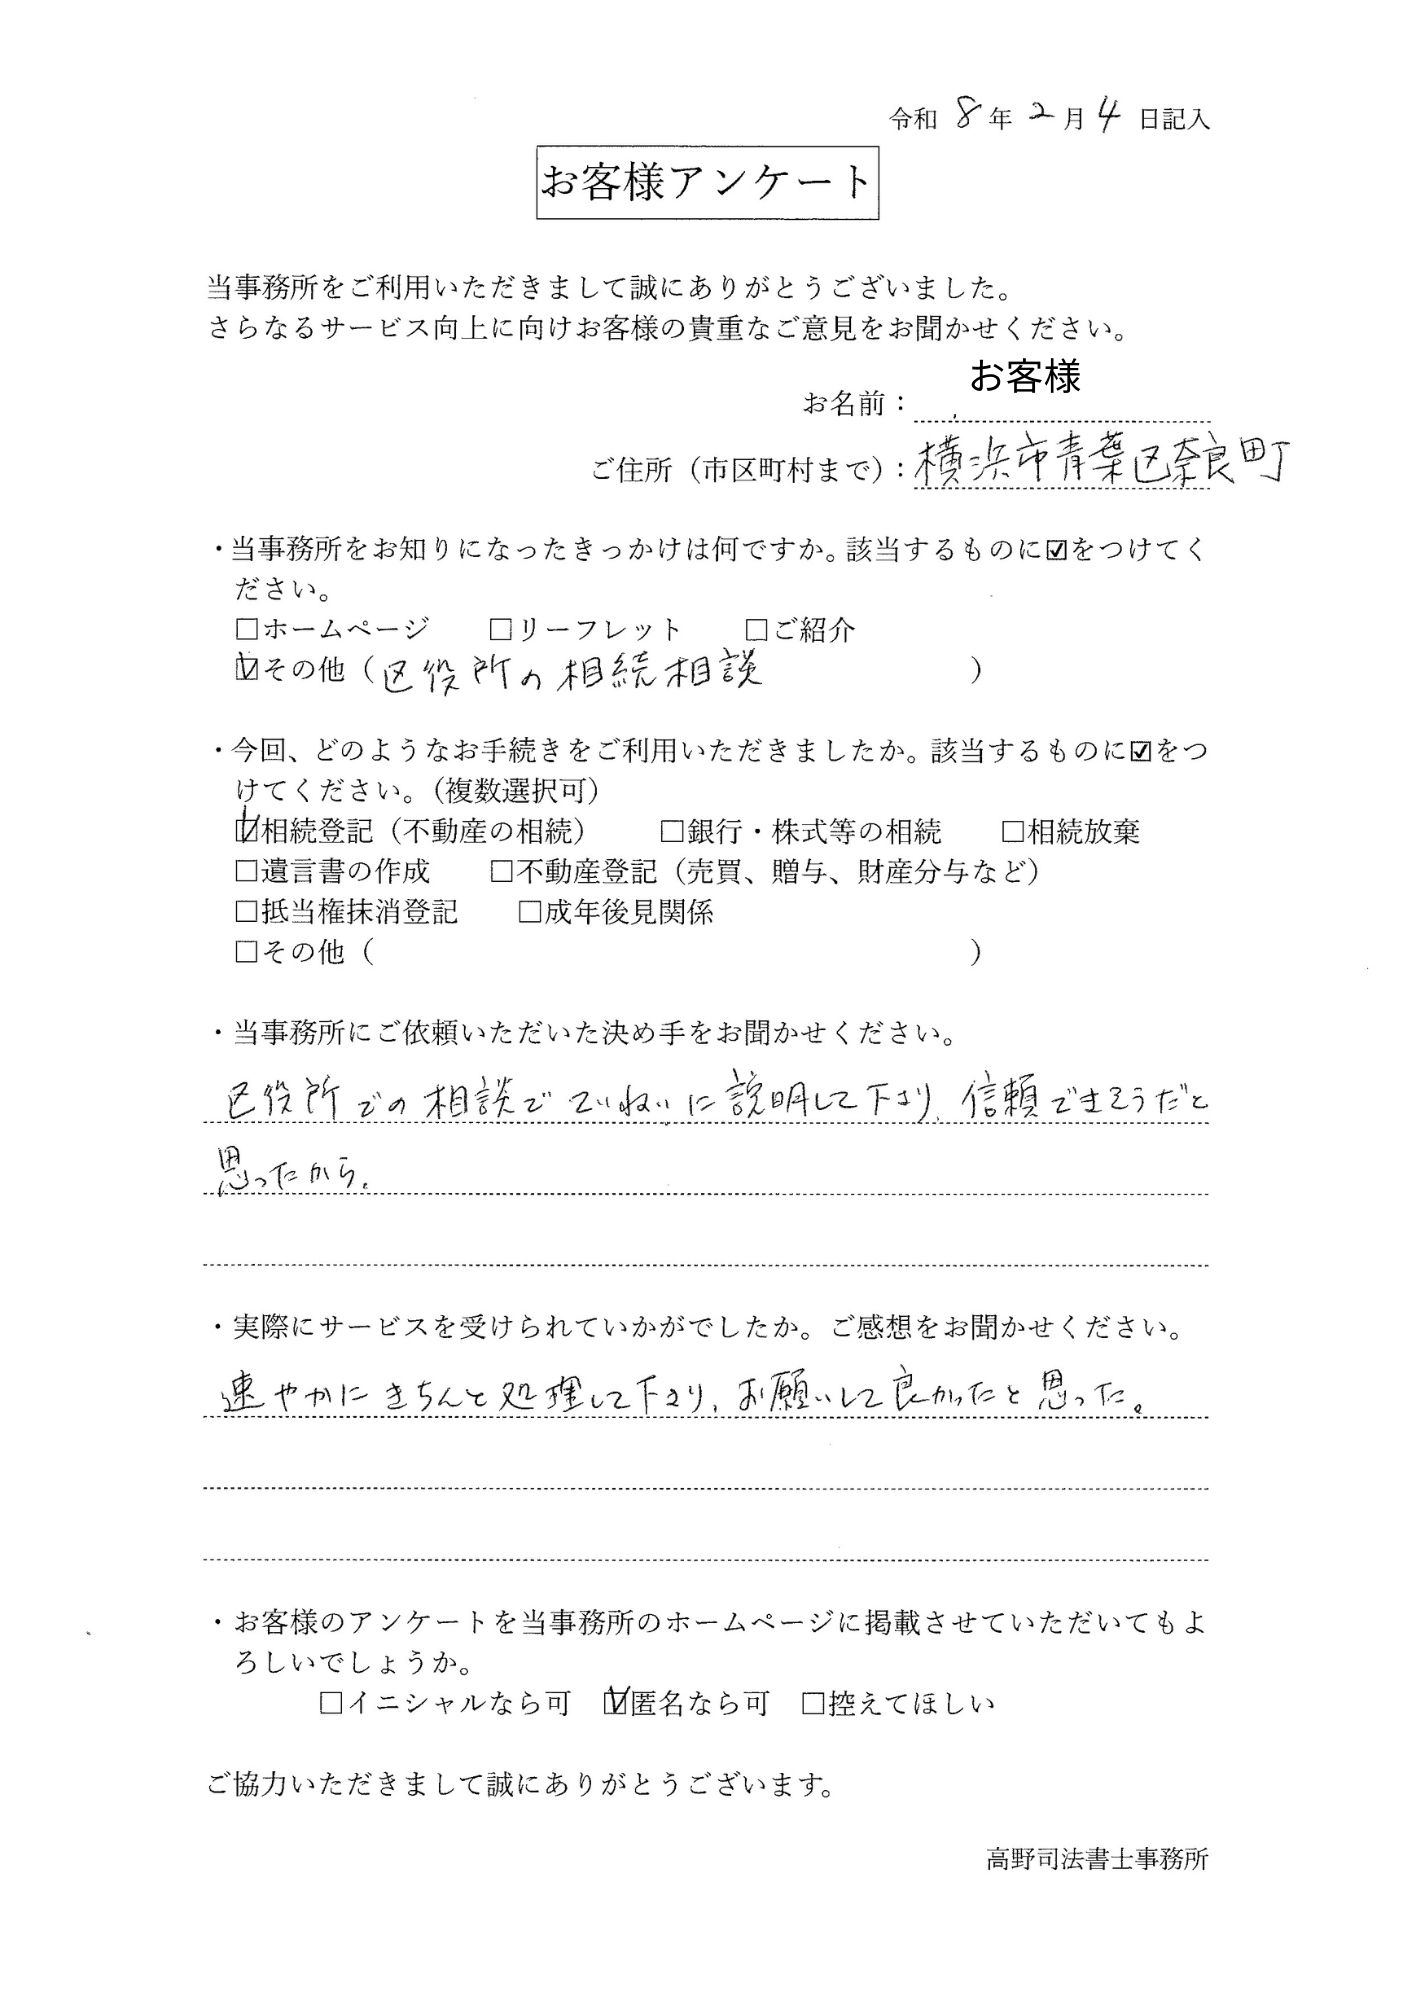 令和 8 年 2 月 4 日記入
お客様アンケート
当事務所をご利用いただきまして誠にありがとうございました。
さらなるサービス向上に向けお客様の貴重なご意見をお聞かせください。
お客様
お名前：
ご住所（市区町村まで）：横浜市青葉区奈良町
・当事務所をお知りになったきっかけは何ですか。該当するものに☑をつけてく
ださい。
□ホームページ　□リーフレット　□ご紹介
☑その他（区役所の相続相談　）
・今回、どのようなお手続きをご利用いただきましたか。該当するものに☑をつ
けてください。（複数選択可）
☑相続登記（不動産の相続）　□銀行・株式等の相続　□相続放棄
□遺言書の作成　□不動産登記（売買、贈与、財産分与など）
□抵当権抹消登記　□成年後見関係
□その他（　）
・当事務所にご依頼いただいた決め手をお聞かせください。
区役所での相談でていねいに説明して下さり、信頼できそうだと
思ったから。
・実際にサービスを受けられていかがでしたか。ご感想をお聞かせください。
速やかにきちんと処理して下さり、お願いして良かったと思った。
・お客様のアンケートを当事務所のホームページに掲載させていただいてもよ
ろしいでしょうか。
□イニシャルなら可　☑匿名なら可　□控えてほしい
ご協力いただきまして誠にありがとうございます。
高野司法書士事務所